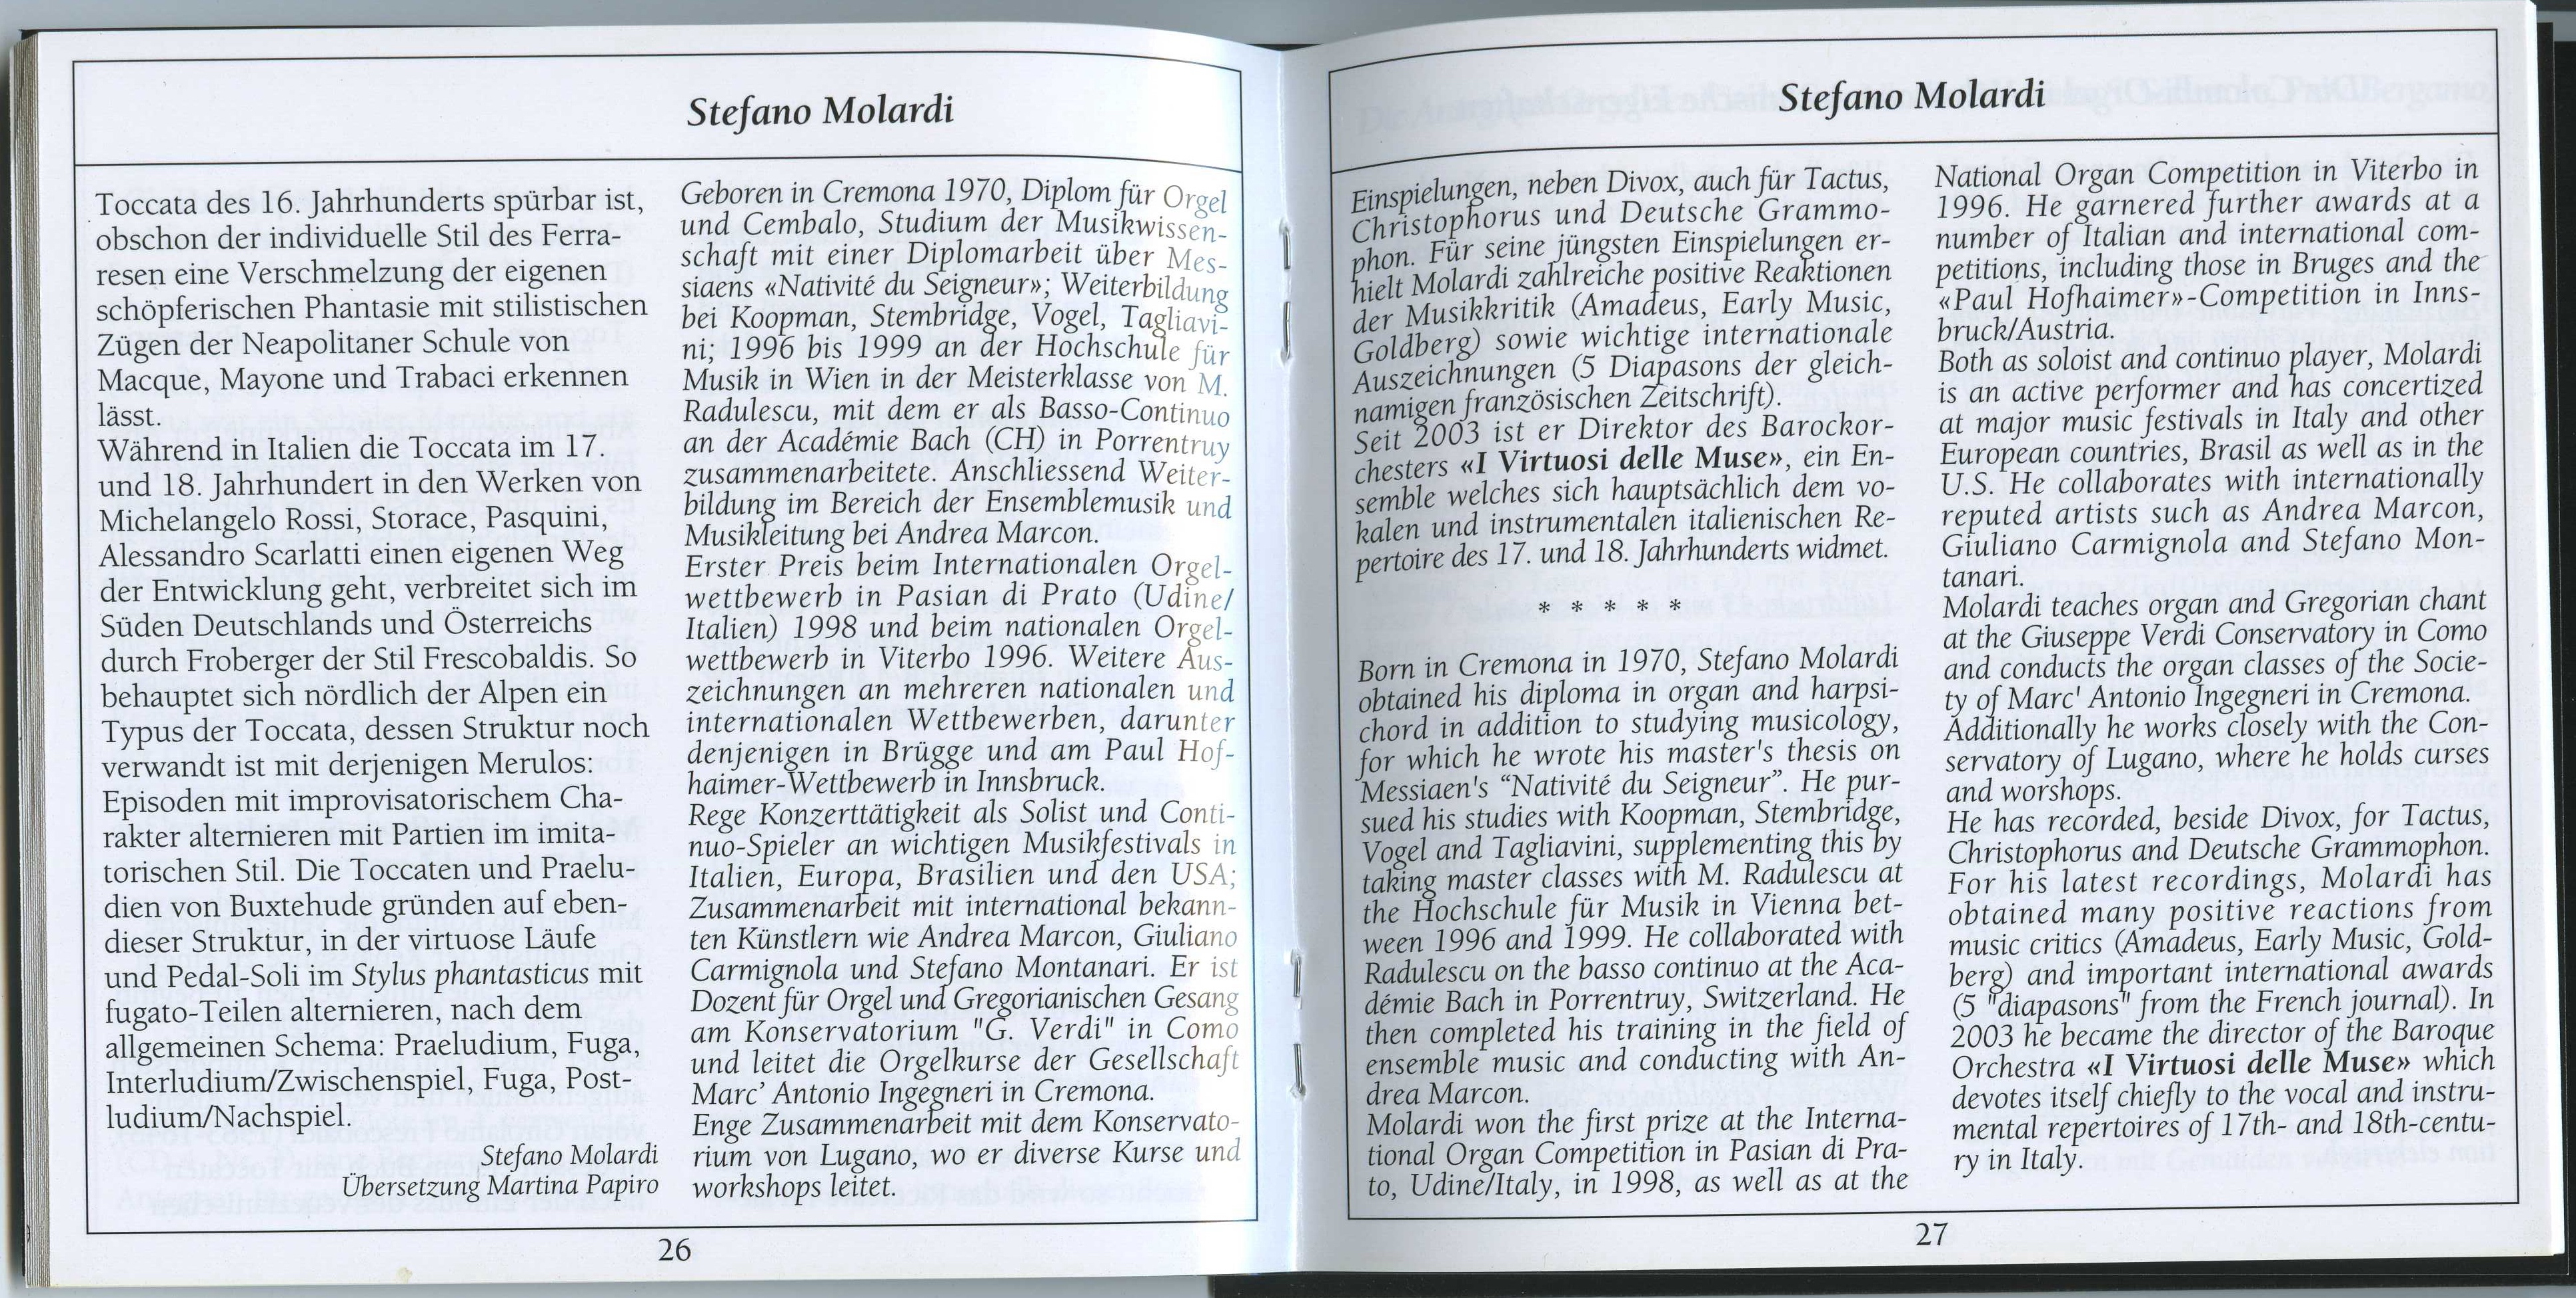 Stefano Molardi
Toccata des 16. Jahrhunderts spürbar ist,
obschon der individuelle Stil des Ferra-
resen eine Verschmelzung der eigenen
schöpferischen Phantasie mit stilistischen
Zügen der Neapolitaner Schule von
Macque, Mayone und Trabaci erkennen
lässt.
Während in Italien die Toccata im 17.
und 18. Jahrhundert in den Werken von
Michelangelo Rossi, Storace, Pasquini,
Alessandro Scarlatti einen eigenen Weg
der Entwicklung geht, verbreitet sich im
Süden Deutschlands und Österreichs
durch Froberger der Stil Frescobaldis. So
behauptet sich nördlich der Alpen ein
Typus der Toccata, dessen Struktur noch
verwandt ist mit derjenigen Merulos:
Episoden mit improvisatorischem Cha-
rakter alternieren mit Partien im imita-
torischen Stil. Die Toccaten und Praelu-
dien von Buxtehude gründen auf eben-
dieser Struktur, in der virtuose Läufe
und Pedal-Soli im Stylus phantasticus mit
fugato-Teilen alternieren, nach dem
allgemeinen Schema: Praeludium, Fuga,
Interludium/Zwischenspiel, Fuga, Post-
ludium/Nachspiel.
Stefano Molardi
Übersetzung Martina Papiro
Geboren in Cremona 1970, Diplom für Orgel
und Cembalo, Studium der Musikwissen-
schaft mit einer Diplomarbeit über Mes-
siaens «Nativité du Seigneur»; Weiterbildung
bei Koopman, Stembridge, Vogel, Tagliavi-
ni; 1996 bis 1999 an der Hochschule für
Musik in Wien in der Meisterklasse von M.
Radulescu, mit dem er als Basso-Continuo
an der Académie Bach (CH) in Porrentruy
zusammenarbeitete. Anschliessend Weiter-
bildung im Bereich der Ensemblemusik und
Musikleitung bei Andrea Marcon.
Erster Preis beim Internationalen Orgel-
wettbewerb in Pasian di Prato (Udine/
Italien) 1998 und beim nationalen Orgel-
wettbewerb in Viterbo 1996. Weitere Aus-
zeichnungen an mehreren nationalen und
internationalen Wettbewerben, darunter
denjenigen in Brügge und am Paul Hof-
haimer-Wettbewerb in Innsbruck.
Rege Konzerttätigkeit als Solist und Conti-
nuo-Spieler an wichtigen Musikfestivals in
Italien, Europa, Brasilien und den USA;
Zusammenarbeit mit international bekann-
ten Künstlern wie Andrea Marcon, Giuliano
Carmignola und Stefano Montanari. Er ist
Dozent für Orgel und Gregorianischen Gesang
am Konservatorium "G. Verdi" in Como
und leitet die Orgelkurse der Gesellschaft
Marc’ Antonio Ingegneri in Cremona.
Enge Zusammenarbeit mit dem Konservato-
rium von Lugano, wo er diverse Kurse und
workshops leitet.
26
Stefano Molardi
Einspielungen, neben Divox, auch für Tactus,
Christophorus und Deutsche Grammo-
phon. Für seine jüngsten Einspielungen er-
hielt Molardi zahlreiche positive Reaktionen
der Musikkritik (Amadeus, Early Music,
Goldberg) sowie wichtige internationale
Auszeichnungen (5 Diapasons der gleich-
namigen französischen Zeitschrift).
Seit 2003 ist er Direktor des Barockor-
chesters «I Virtuosi delle Muse», ein En-
semble welches sich hauptsächlich dem vo-
kalen und instrumentalen italienischen Re-
pertoire des 17. und 18. Jahrhunderts widmet.
* * * * *
Born in Cremona in 1970, Stefano Molardi
obtained his diploma in organ and harpsi-
chord in addition to studying musicology,
for which he wrote his master's thesis on
Messiaen's “Nativité du Seigneur”. He pur-
sued his studies with Koopman, Stembridge,
Vogel and Tagliavini, supplementing this by
taking master classes with M. Radulescu at
the Hochschule für Musik in Vienna bet-
ween 1996 and 1999. He collaborated with
Radulescu on the basso continuo at the Aca-
démie Bach in Porrentruy, Switzerland. He
then completed his training in the field of
ensemble music and conducting with An-
drea Marcon.
Molardi won the first prize at the Interna-
tional Organ Competition in Pasian di Pra-
to, Udine/Italy, in 1998, as well as at the
National Organ Competition in Viterbo in
1996. He garnered further awards at a
number of Italian and international com-
petitions, including those in Bruges and the
«Paul Hofhaimer»-Competition in Inns-
bruck/Austria.
Both as soloist and continuo player, Molardi
is an active performer and has concertized
at major music festivals in Italy and other
European countries, Brasil as well as in the
U.S. He collaborates with internationally
reputed artists such as Andrea Marcon,
Giuliano Carmignola and Stefano Mon-
tanari.
Molardi teaches organ and Gregorian chant
at the Giuseppe Verdi Conservatory in Como
and conducts the organ classes of the Socie-
ty of Marc' Antonio Ingegneri in Cremona.
Additionally he works closely with the Con-
servatory of Lugano, where he holds curses
and worshops.
He has recorded, beside Divox, for Tactus,
Christophorus and Deutsche Grammophon.
For his latest recordings, Molardi has
obtained many positive reactions from
music critics (Amadeus, Early Music, Gold-
berg) and important international awards
(5 "diapasons" from the French journal). In
2003 he became the director of the Baroque
Orchestra «I Virtuosi delle Muse» which
devotes itself chiefly to the vocal and instru-
mental repertoires of 17th- and 18th-centu-
ry in Italy.
27